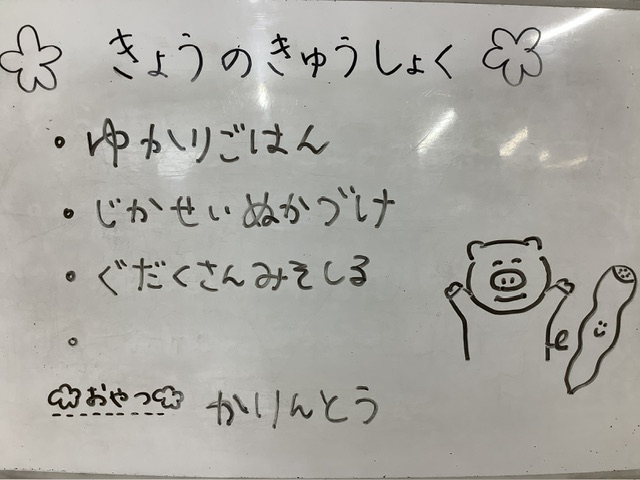 きょうのきゅうしょく
・ゆかりごはん
・じかせいぬかづけ
・ぐだくさんみそしる
・
おやつ かりんとう